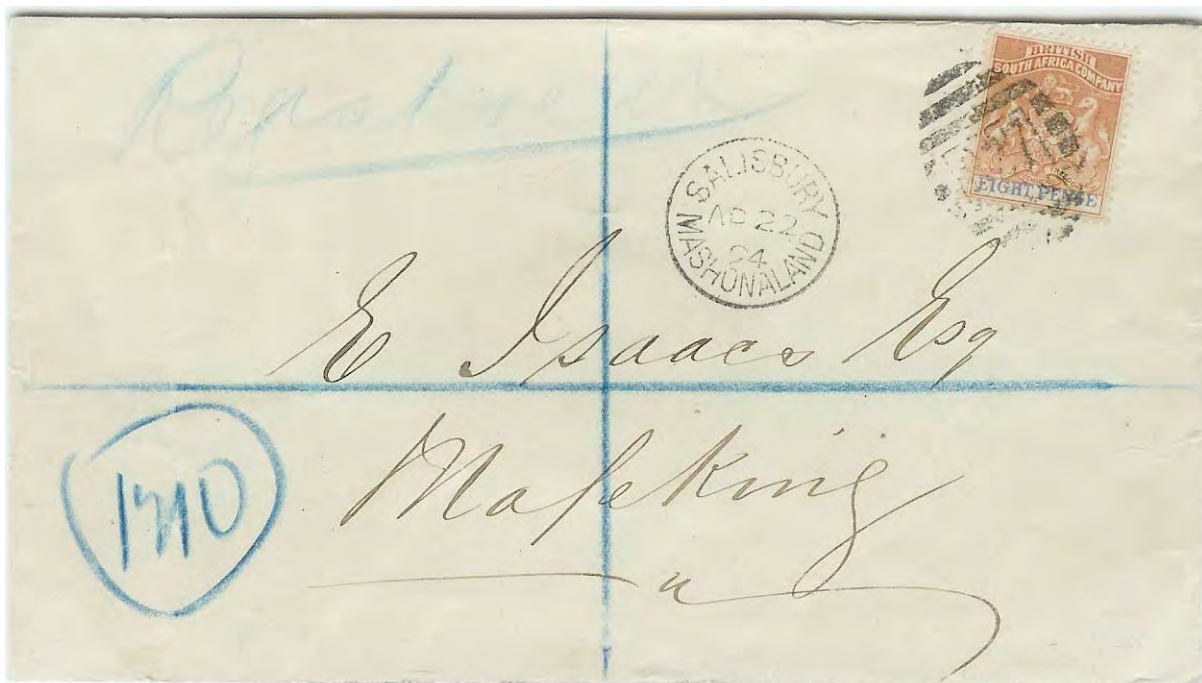 Registered
BRITISH
SOUTH AFRICA COMPANY
EIGHT PENCE
SALISBURY
AP 22
94
MASHONALAND
E Isaacs Esq
Mafeking